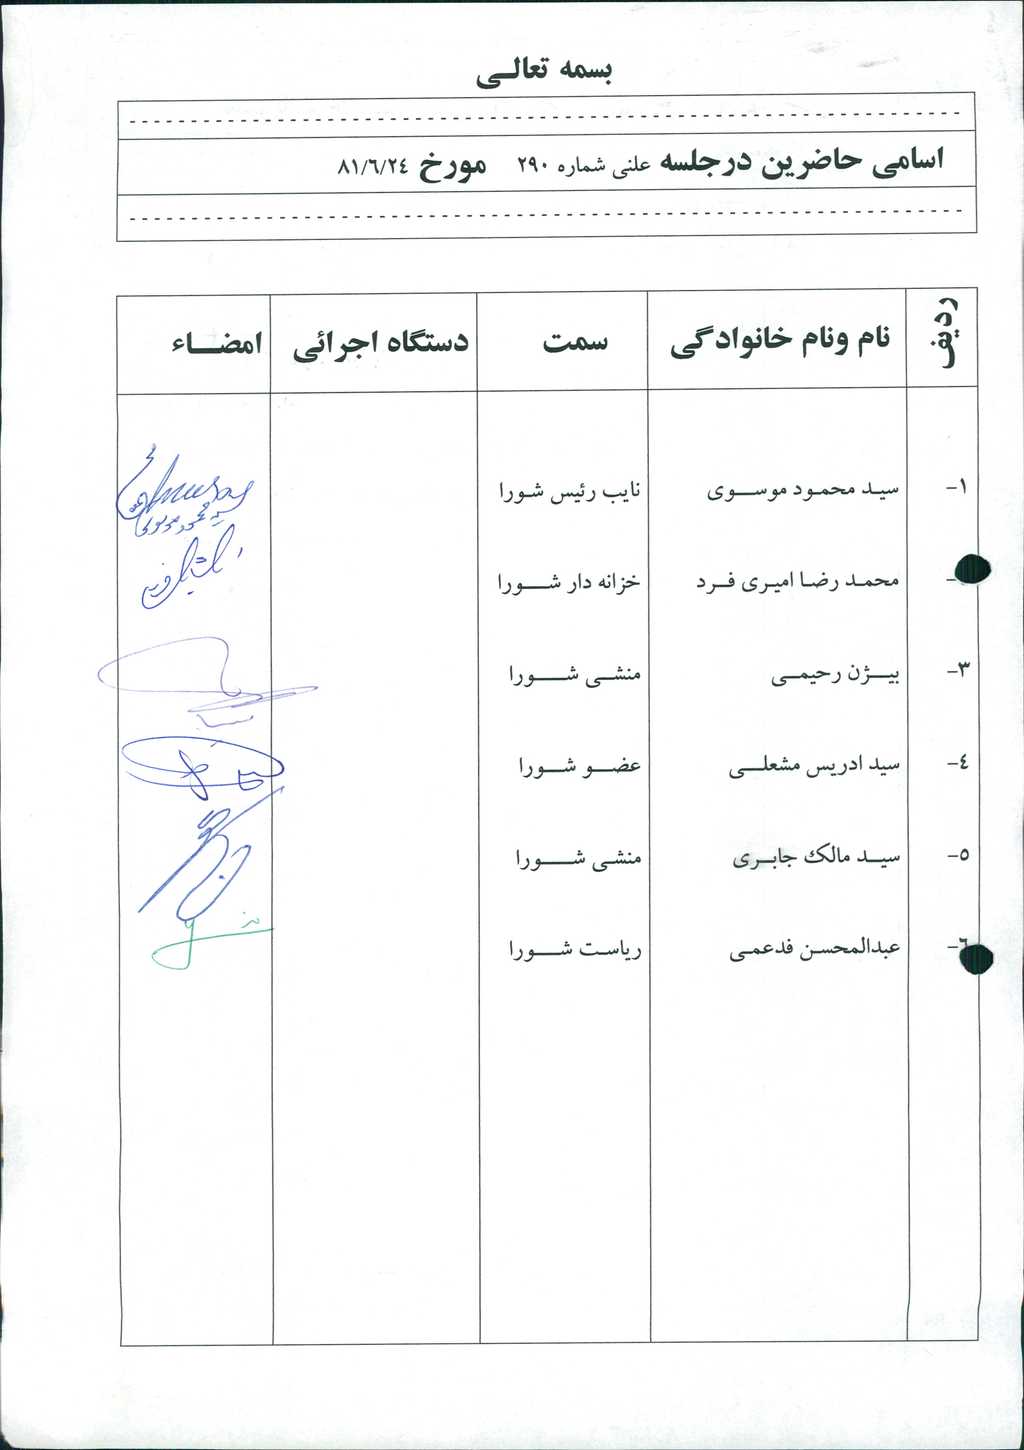 بسمه تعالی
اسامی حاضرین درجلسه علنی شماره ۲۹۰ مورخ ۸۱/۶/۲٤
ردیف نام ونام خانوادگی سمت دستگاه اجرائی امضاء
۱- سید محمود موسوی نایب رئیس شورا
سید محمود موسوی
- محمد رضا امیری فرد خزانه دار شورا
۳- بیژن رحیمی منشی شورا
٤- سید ادریس مشعلی عضو شورا
۵- سید مالک جابری منشی شورا
٦- عبدالمحسن فدعمی ریاست شورا